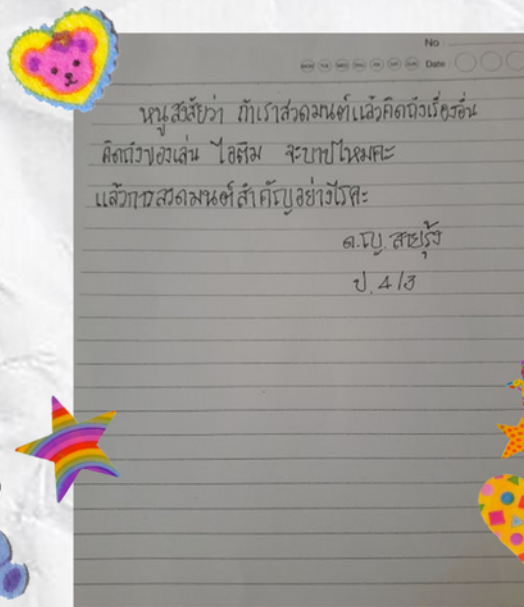 No
MON TUE WED THU FRI SAT SUN Date
หนูสงสัยว่า ถ้าเราสวดมนต์แล้วคิดถึงเรื่องอื่น
คิดถึงของเล่น ไอติม จะบาปไหมคะ
แล้วการสวดมนต์สำคัญอย่างไรคะ
ด.ญ. สายรุ้ง
ป. 4/3